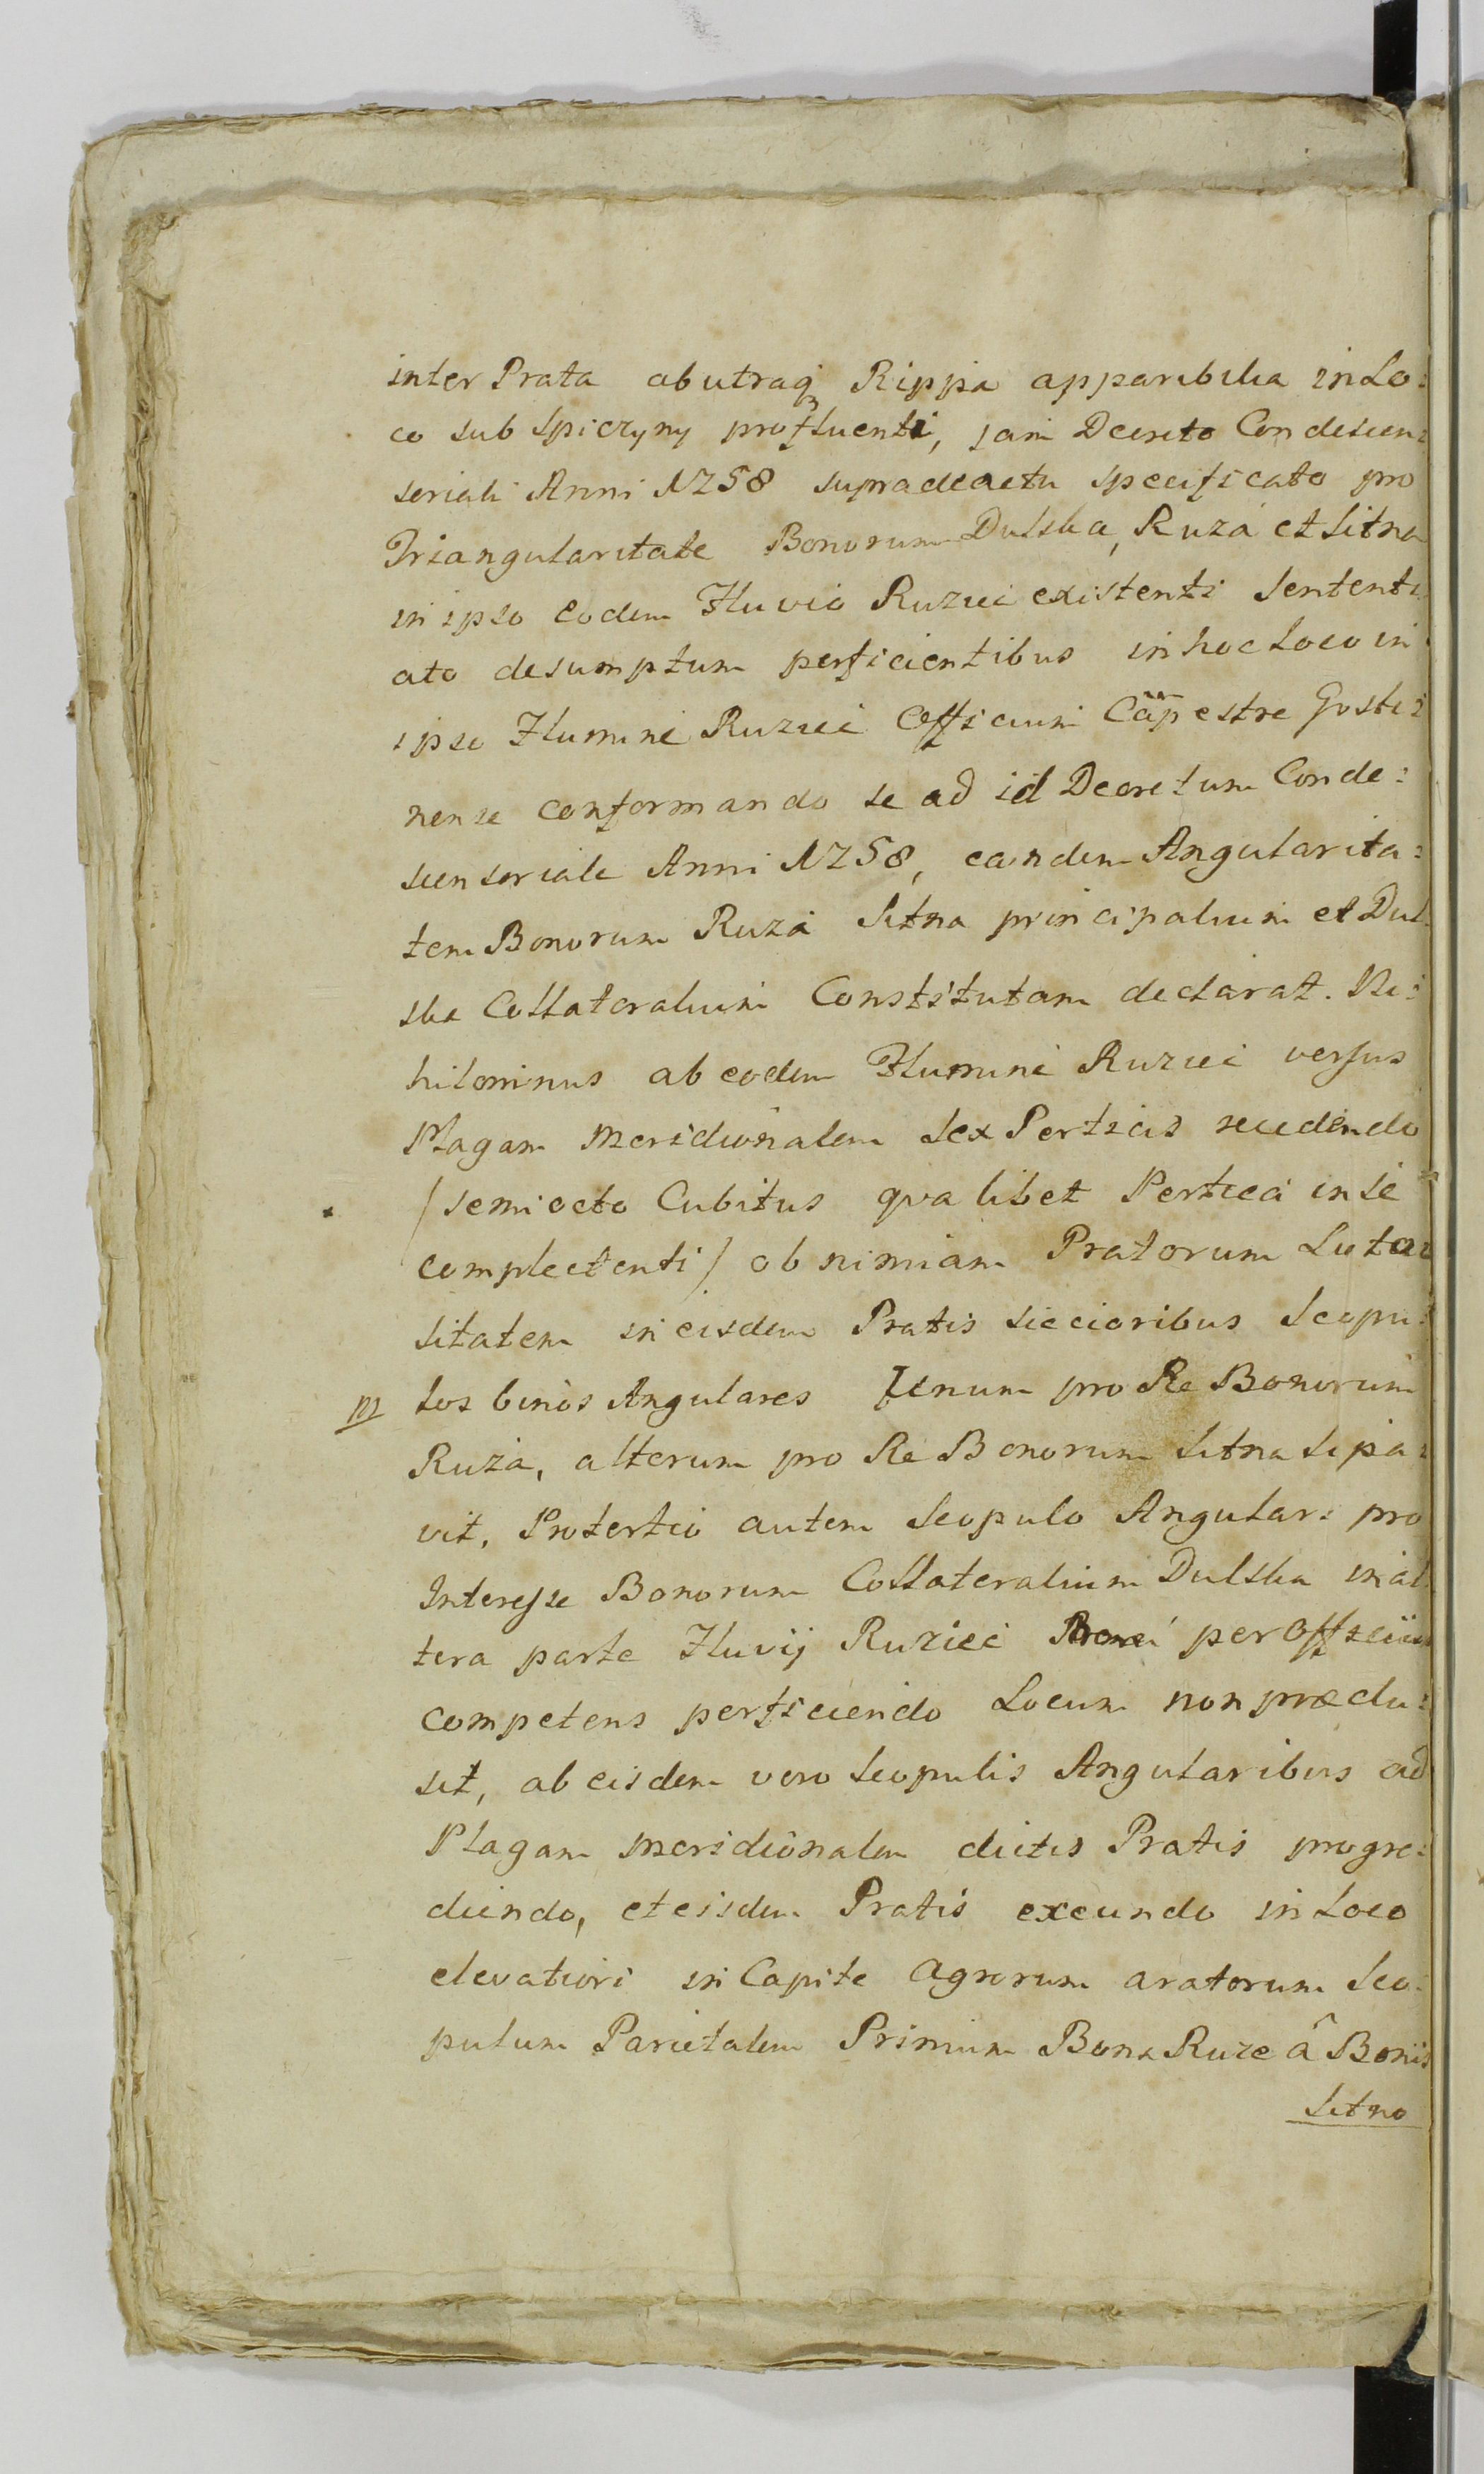 inter Prata ab utraq₃ Rippa apparibilia in Lo:
co sub Spiczyny profluenti, jam Decreto Condescen:
soriali Anni 1758 supradeactu specificato pro
Triangularitate Bonorum Dulska, Ruza et Sitna
in ipso eodem Fluvio Ruziec existenti Sententi
ato desumptum perficientibus in hoc Loco in
ipso Flumine Ruziec Officium Capestre Gosti:
nense conformando se ad id Decretum Conde:
scensoriale Anni 1758, eandem Angularita:
tem Bonorum Ruza Sitna principalium et Dul
ska Collateralium Constitutam declarat. Ni:
hilominus ab eodem Flumine Ruziec versus
Plagam Meridionalem Sex Perticis recedendo
/semiocto Cubitus qvalibet Pertica in se
complectenti/ ob nimiam Pratorum Luto:
sitatem in eisdem Pratis siccioribus Scopu:
m los binos Angulares Unum pro Re Bonorum
Ruża, alterum pro Re Bonorum Sitna Sipa:
vit, Pro tertio autem Scopulo Angular: pro
Interesse Bonorum Collateralium Dulska in al
tera parte Fluvij Ruziec per Officiũ
competens perficiendo Locum non præclu:
sit, ab eisdem vero Scopulis Angularibus ad
Plagam Meridionalem dictis Pratis progre:
diendo, et eisdem Pratis exeundo in Loco
elevatiori in Capite Agrorum aratorum Sco:
pulum Parietalem Primum Bona Ruze â Bonis
Sitno